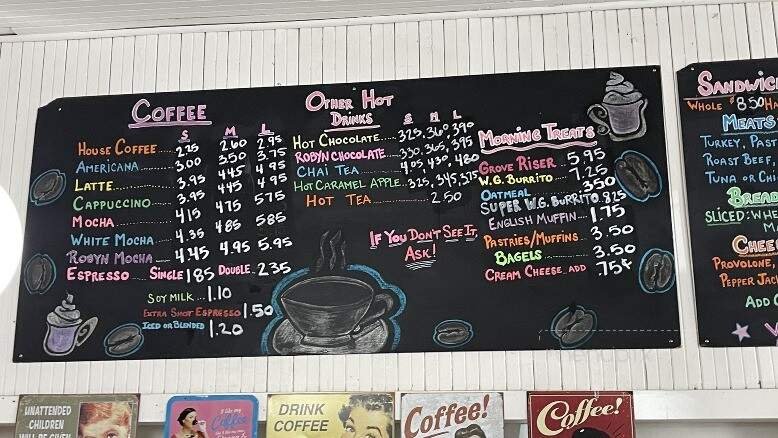 COFFEE
S M L
HOUSE COFFEE 2.25 2.60 2.95
AMERICANA 3.00 3.50 3.75
LATTE 3.95 4.45 4.95
CAPPUCCINO 3.95 4.45 4.95
MOCHA 4.15 4.75 5.75
WHITE MOCHA 4.35 4.85 5.85
ROBYN MOCHA 4.45 4.95 5.95
ESPRESSO SINGLE 1.85 DOUBLE 2.35
SOY MILK 1.10
EXTRA SHOT ESPRESSO 1.50
ICED OR BLENDED 1.20
OTHER HOT
DRINKS
S M L
HOT CHOCOLATE 3.25, 3.60, 3.90
ROBYN CHOCOLATE 3.30, 3.65, 3.95
CHAI TEA 4.05, 4.30, 4.80
HOT CARAMEL APPLE 3.25, 3.45, 3.75
HOT TEA 2.50
IF YOU DON'T SEE IT,
ASK!
MORNING TREATS
GROVE RISER 5.95
W.G. BURRITO 7.25
OATMEAL 3.50
SUPER W.G. BURRITO 8.25
ENGLISH MUFFIN 1.75
PASTRIES/MUFFINS 3.50
BAGELS 3.50
CREAM CHEESE ADD 75¢
SANDWIC
WHOLE $8.50 HA
MEATS
TURKEY, PAST
ROAST BEEF,
TUNA OR CHI
BREAD
SLICED: WH
CHEE
PROVOLONE,
PEPPER JAC
ADD
UNATTENDED
CHILDREN
WILL BE GIVEN
I like my
Coffee
DRINK
COFFEE
Coffee!
Coffee!